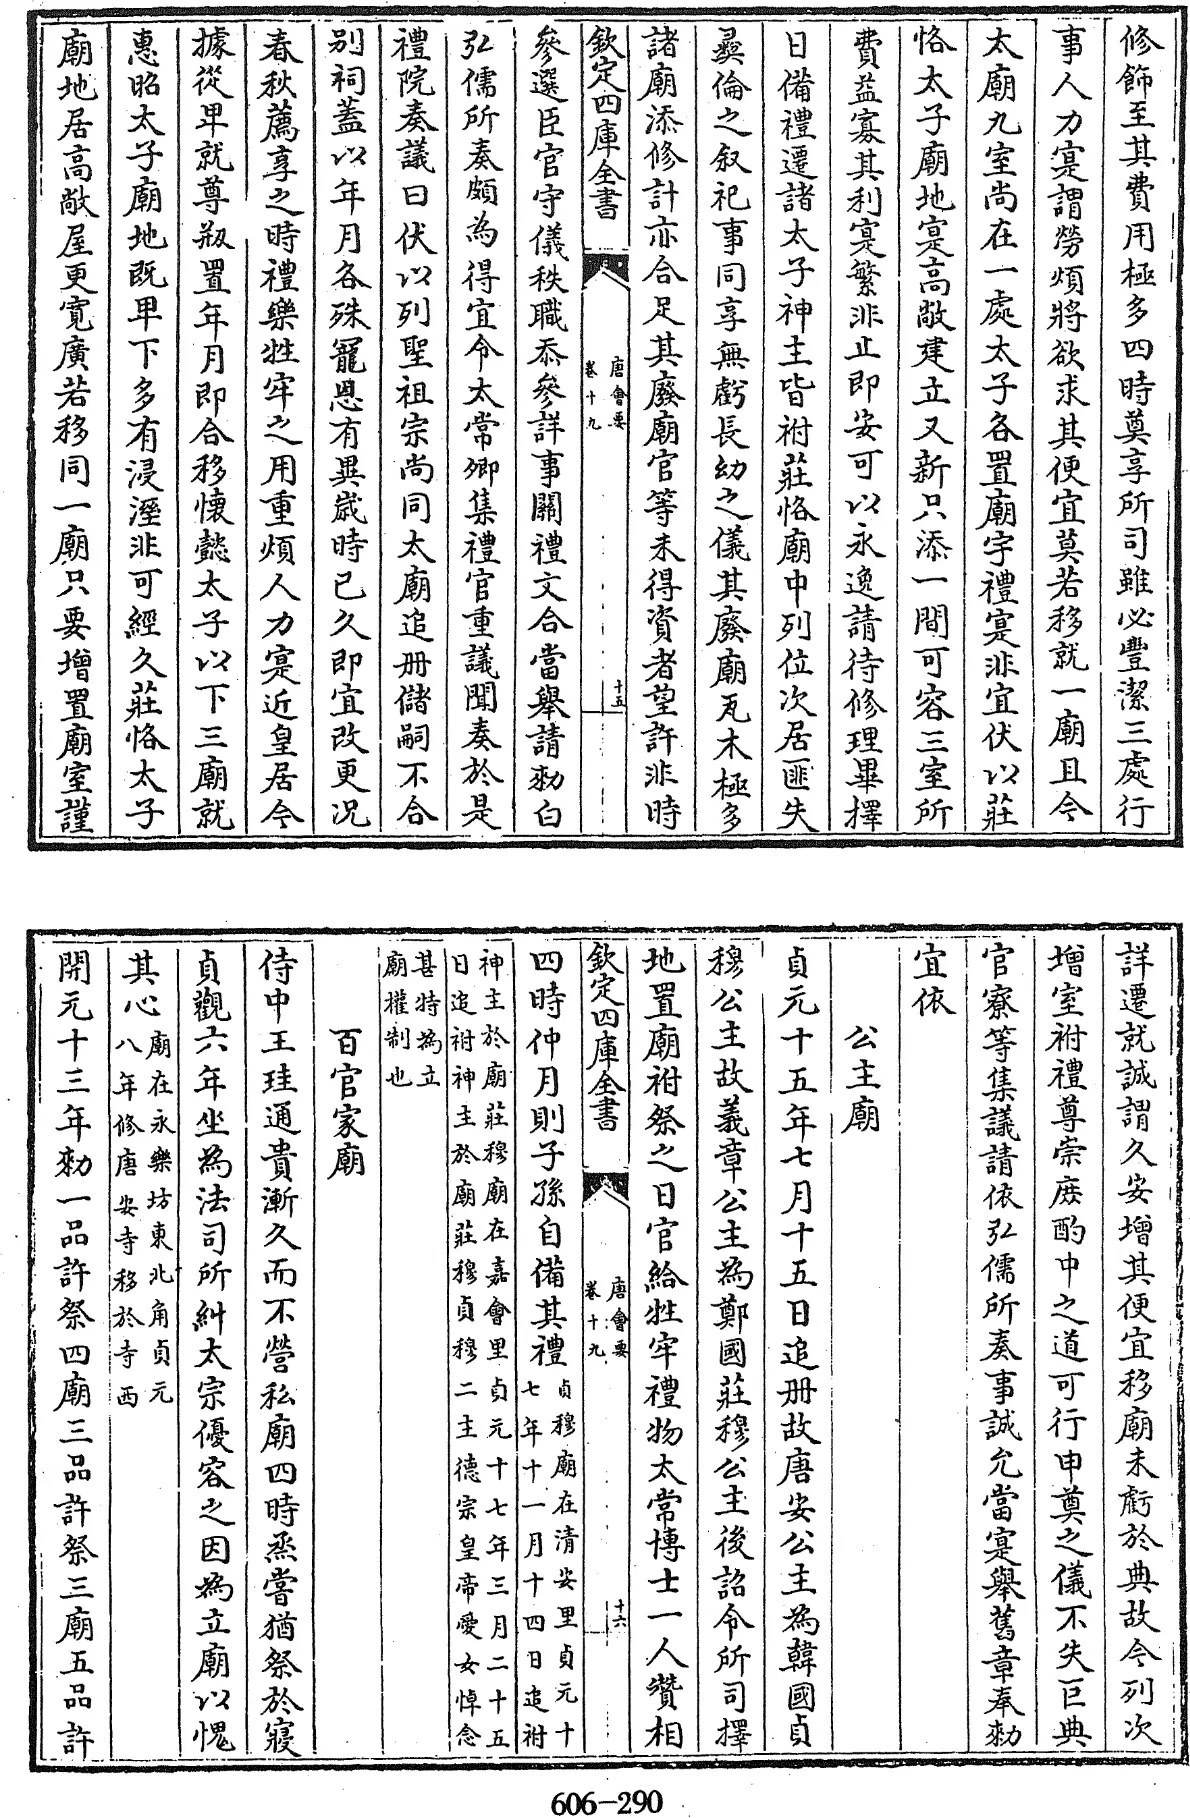 修飾至其費用極多四時奠享所司雖必豐潔三處行
事人力寔謂勞煩將欲求其便宜莫若移就一廟且今
太廟九室尚在一處太子各置廟宇禮寔非宜伏以莊
恪太子廟地寔高敞建立又新只添一間可容三室所
費益寡其利寔繁非止即安可以永逸請待修理畢擇
日備禮遷諸太子神主皆祔莊恪廟中列位次居匪失
彛倫之叙祀事同享無虧長幼之儀其廢廟瓦木極多
諸廟添修計亦合足其廢廟官等未得資者望許非時
欽定四庫全書
唐會要
卷十九
十五
參選臣官守儀秩職忝參詳事關禮文合當舉請勑白
弘儒所奏頗為得宜令太常卿集禮官重議聞奏於是
禮院奏議曰伏以列聖祖宗尚同太廟追冊儲嗣不合
别祠蓋以年月各殊寵恩有異歲時已久即宜改更况
春秋薦享之時禮樂牲牢之用重煩人力寔近皇居今
據從卑就尊叛置年月即合移懷懿太子以下三廟就
惠昭太子廟地既卑下多有浸溼非可經久莊恪太子
廟地居高敞屋更寛廣若移同一廟只要增置廟室謹
詳遷就誠謂久安增其便宜移廟未虧於典故今列次
增室祔禮尊崇庶酌中之道可行申奠之儀不失巨典
官寮等集議請依弘儒所奏事誠允當寔舉舊章奉勑
宜依
公主廟
貞元十五年七月十五日追冊故唐安公主為韓國貞
穆公主故義章公主為鄭國莊穆公主後詔令所司擇
地置廟祔祭之日官給牲牢禮物太常博士一人贊相
欽定四庫全書
唐會要
卷十九
十六
四時仲月則子孫自備其禮貞穆廟在清安里貞元十
七年十一月十四日追祔
神主於廟莊穆廟在嘉會里貞元十七年三月二十五
日追祔神主於廟莊穆貞穆二主德宗皇帝愛女悼念
甚特為立
廟權制也
百官家廟
侍中王珪通貴漸久而不營私廟四時烝嘗猶祭於寢
貞觀六年坐為法司所糾太宗優容之因為立廟以愧
其心廟在永樂坊東北角貞元
八年修唐安寺移於寺西
開元十三年勑一品許祭四廟三品許祭三廟五品許
606-290